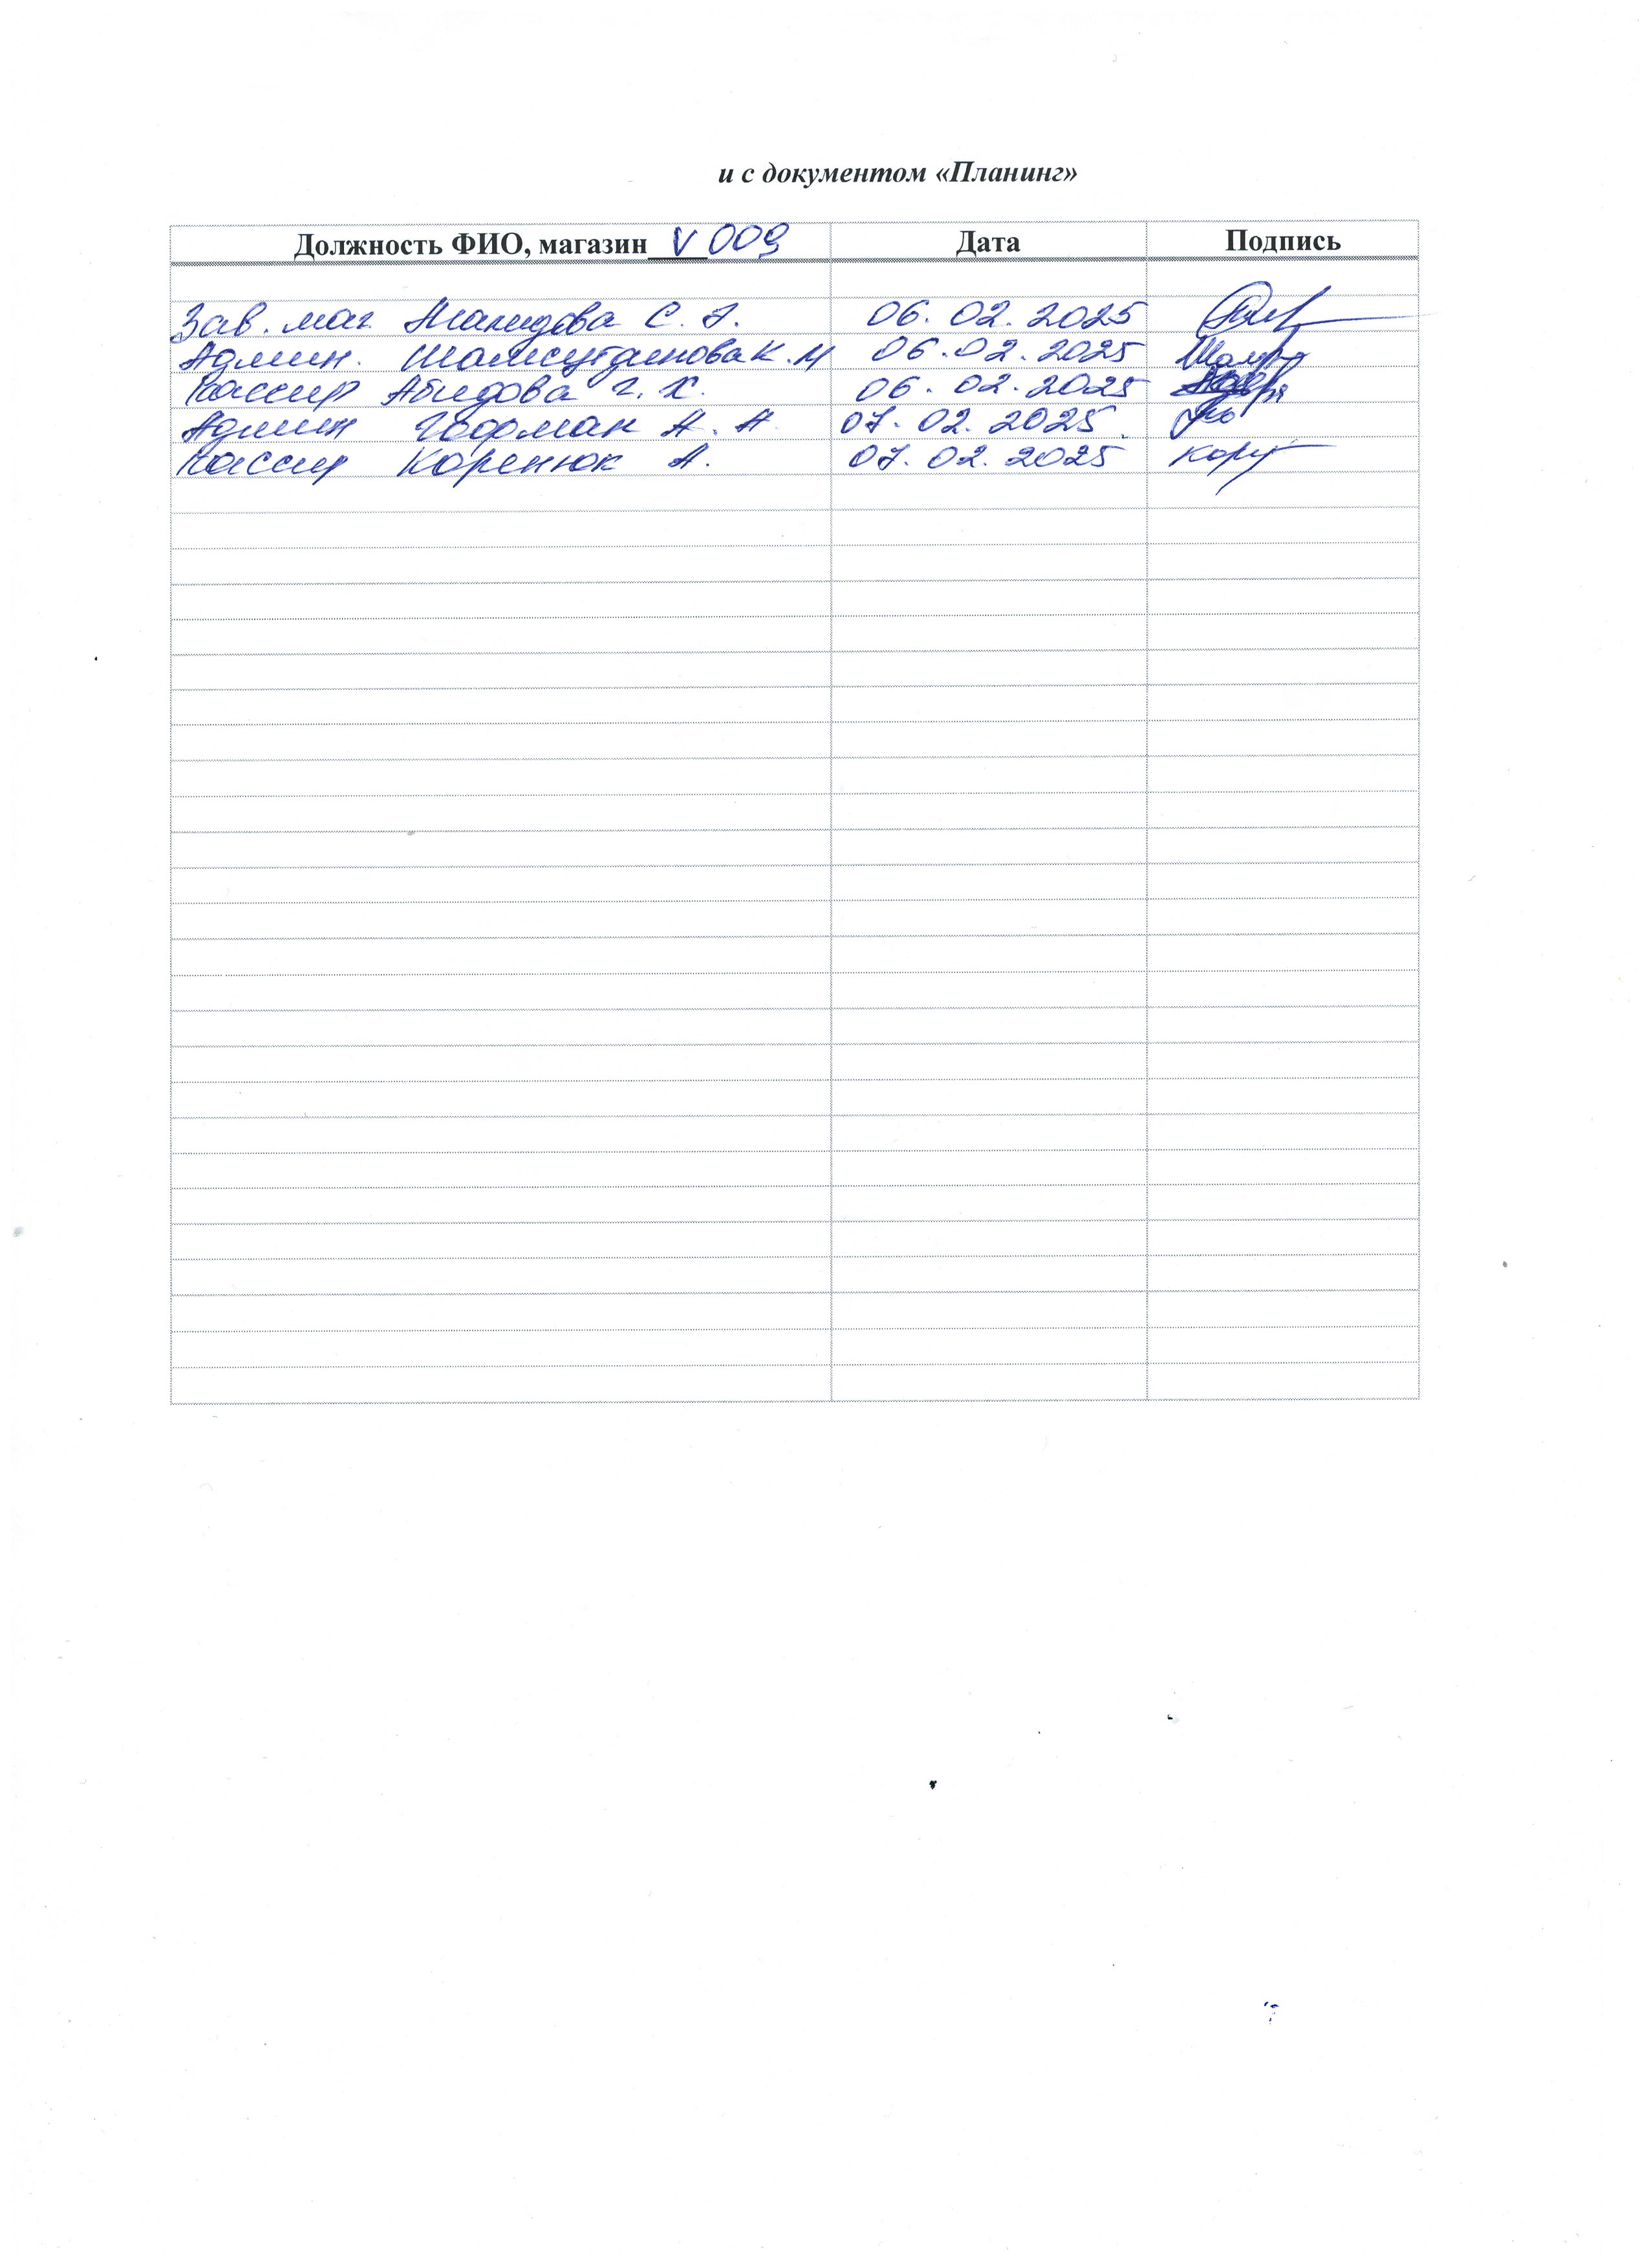 и с документом «Планинг»
Должность ФИО, магазин V 009 Дата Подпись
Зав. маг. С. 06. 02. 2025
Админ. Шамсутдинова К. М 06.02.2025
Кассир Абидова Г. Х. 06. 02. 2025
Админ Гофман А. А 07. 02. 2025.
Кассир Коренюк А. 07. 02. 2025 Кор